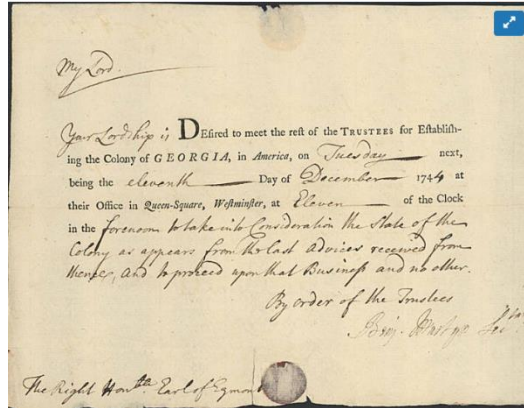 My Lord.
Your Lordship is DEsired to meet the rest of the TRUSTEES for Establish-
ing the Colony of GEORGIA, in America, on Tuesday next,
being the eleventh Day of December 1744 at
their Office in Queen-Square, Westminster, at Eleven of the Clock
in the forenoon to take into Consideration the State of the
Colony as appears from the last Advices received from
thence, and to proceed upon that Business and no other.
By order of the Trustees
Benj. Martyn
The Right Honble. Earl of Egmont